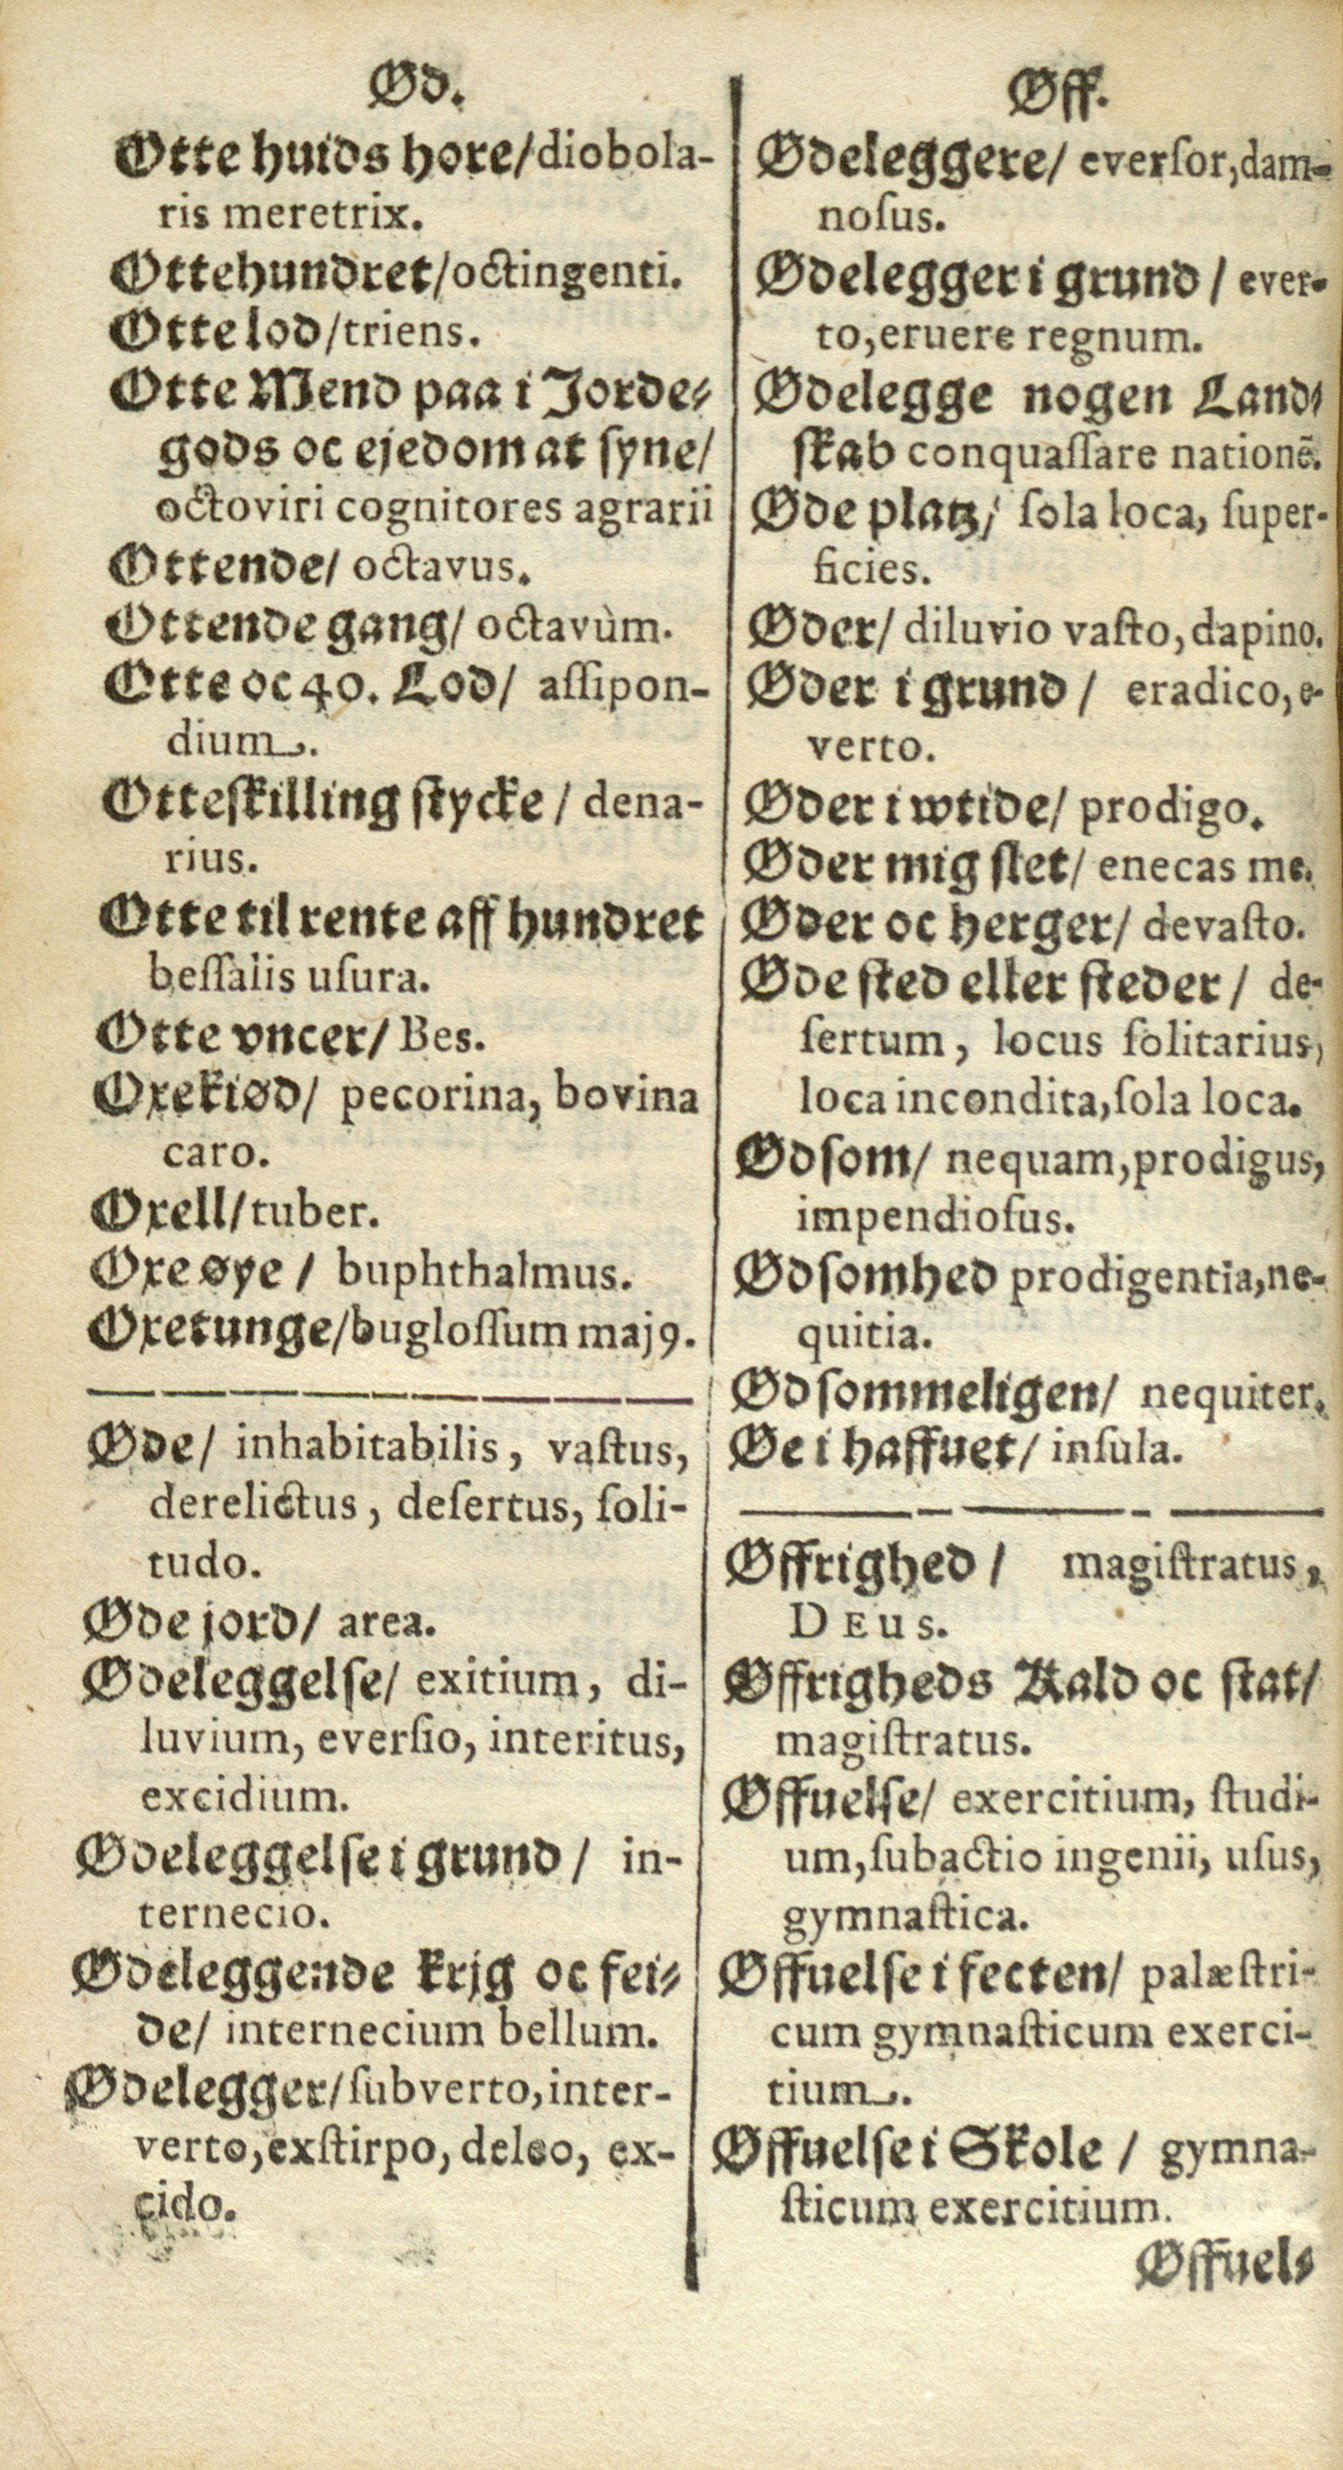 Ød.
Otte huids hore/diobola-
ris meretrix.
Ottehundret/octingenti.
Otte lod/triens.
Otte Mend paa i Jorde-
gods oc ejedom at syne/
octoviri cognitores agrarii
Ottende/ octavus.
Ottende gang/ octavùm.
Otte oc 40. Lod/ aſſipon-
dium.
Otteſkilling ſtycke / dena-
rius.
Otte til rente aff hundret
beſſalis uſura.
Otte vncer/ Bes.
Oxekiød/ pecorina, bovina
caro.
Oxell/tuber.
Oxe øye / buphthalmus.
Oxetunge/bugloſſum maj9.
Øde/ inhabitabilis, vaſtus,
derelictus, deſertus, ſoli-
tudo.
Øde jord/ area.
Ødeleggelſe/ exitium, di-
luvium, everſio, interitus,
excidium.
Ødeleggelſe i grund / in-
ternecio.
Ødeleggende krjg oc fei-
de/ internecium bellum.
Ødelegger/ſubverto,inter-
verto,exſtirpo, deleo, ex-
cido.
Øff.
Ødeleggere/ everſor,dam-
noſus.
Ødelegger i grund / ever-
to,eruere regnum.
Ødelegge nogen Land-
ſkab conquaſſare nationē.
Øde platz/ ſola loca, ſuper-
ficies.
Øder/ diluvio vaſto, dapino.
Øder i grund / eradico, e-
verto.
Øder i wtide/ prodigo.
Øder mig ſlet/ enecas me.
Øder oc herger/ devaſto.
Øde ſted eller ſteder / de-
ſertum, locus ſolitarius,
loca incondita,ſola loca.
Ødſom/ nequam,prodigus,
impendioſus.
Ødſomhed prodigentia,ne-
quitia.
Ødſommeligen/ nequiter.
Øe i haffuet/ inſula.
Øffrighed / magiſtratus,
DEus.
Øffrigheds Kald oc ſtat/
magiſtratus.
Øffuelſe/ exercitium, ſtudi-
um,ſubactio ingenii, uſus,
gymnaſtica.
Øffuelſe i fecten/ palæſtri-
cum gymnaſticum exerci-
tium.
Øffuelſe i Skole / gymna-
ſticum exercitium.
Øffuel-